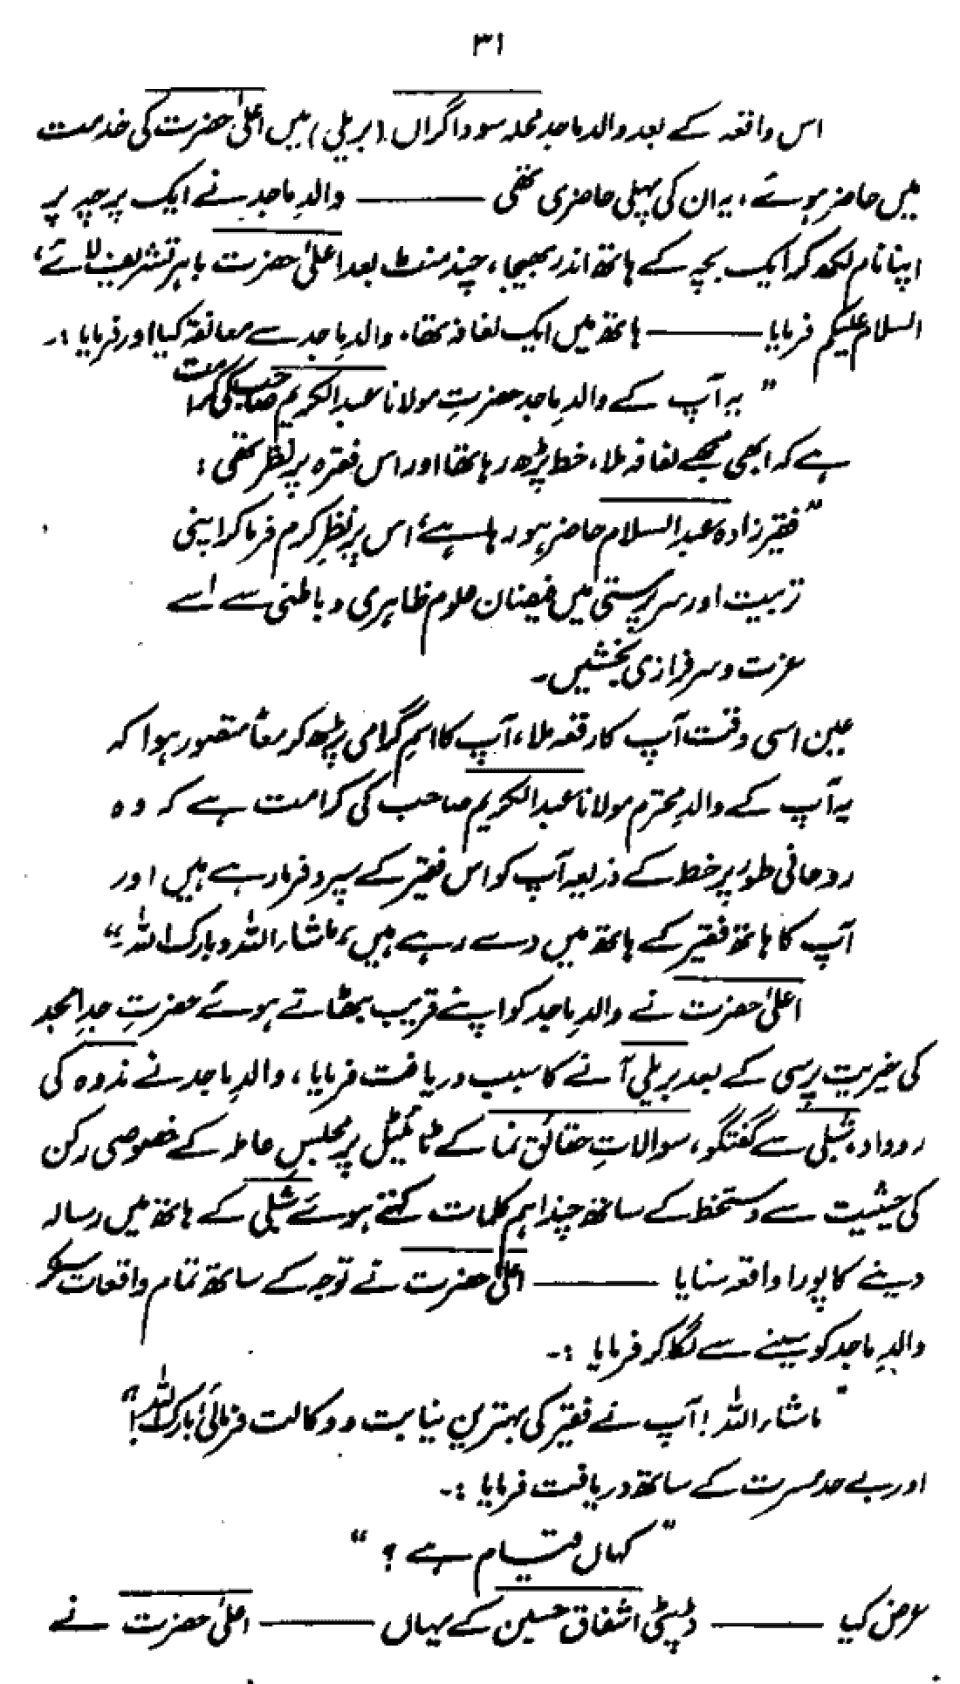 ۳۱
اس واقعہ کے بعد والد ماجد محلہ سوداگراں (بریلی) میں اعلیٰ حضرت کی خدمت
میں حاضر ہوئے، یہ ان کی پہلی حاضری تھی ——— والدِ ماجد نے ایک پرچہ پر
اپنا نام لکھ کر ایک بچہ کے ہاتھ اندر بھیجا، چند منٹ بعد اعلیٰ حضرت باہر تشریف لائے،
السلام علیکم فرمایا ——— ہاتھ میں ایک لفافہ تھا، والدِ ماجد سے معانقہ کیا اور فرمایا :۔
" یہ آپ کے والدِ ماجد حضرتِ مولانا عبدالکریم صاحب کی کرامت
ہے کہ ابھی مجھے لفافہ ملا، خط پڑھ رہا تھا اور اس فقرہ پر نظر تھی :
" فقیر زادہ عبدالسلام حاضر ہو رہا ہے، اس پر نظرِ کرم فرما کر اپنی
تربیت اور سرپرستی میں فیضان علوم ظاہری و باطنی سے اسے
عزت و سرفرازی بخشیں۔
عین اسی وقت آپ کا رقعہ ملا، آپ کا اسمِ گرامی پڑھ کر معاً متصور ہوا کہ
یہ آپ کے والدِ محترم مولانا عبدالکریم صاحب کی کرامت ہے کہ وہ
روحانی طور پر خط کے ذریعہ آپ کو اس فقیر کے سپرد فرما رہے ہیں اور
آپ کا ہاتھ فقیر کے ہاتھ میں دے رہے ہیں، ماشاء اللہ و بارک اللہ۔"
اعلیٰ حضرت نے والدِ ماجد کو اپنے قریب بٹھاتے ہوئے حضرتِ جدِ امجد
کی خیریت پرسی کے بعد بریلی آنے کا سبب دریافت فرمایا، والدِ ماجد نے ندوہ کی
روداد، شبلی سے گفتگو، سوالاتِ حقائق نما کے ٹائیٹل پر مجلسِ عاملہ کے خصوصی رکن
کی حیثیت سے دستخط کے ساتھ چند اہم کلمات لکھتے ہوئے شبلی کے ہاتھ میں رسالہ
دینے کا پورا واقعہ سنایا ——— اعلیٰ حضرت نے توجہ کے ساتھ تمام واقعات سنکر
والدِ ماجد کو سینے سے لگا کر فرمایا :۔
" ماشاء اللہ! آپ نے فقیر کی بہترین نیابت و وکالت فرمائی، بارک اللہ!"
اور بے حد مسرت کے ساتھ دریافت فرمایا :۔
" کہاں قیام ہے ؟ "
عرض کیا ——— ڈپٹی اشفاق حسین کے یہاں ——— اعلیٰ حضرت نے